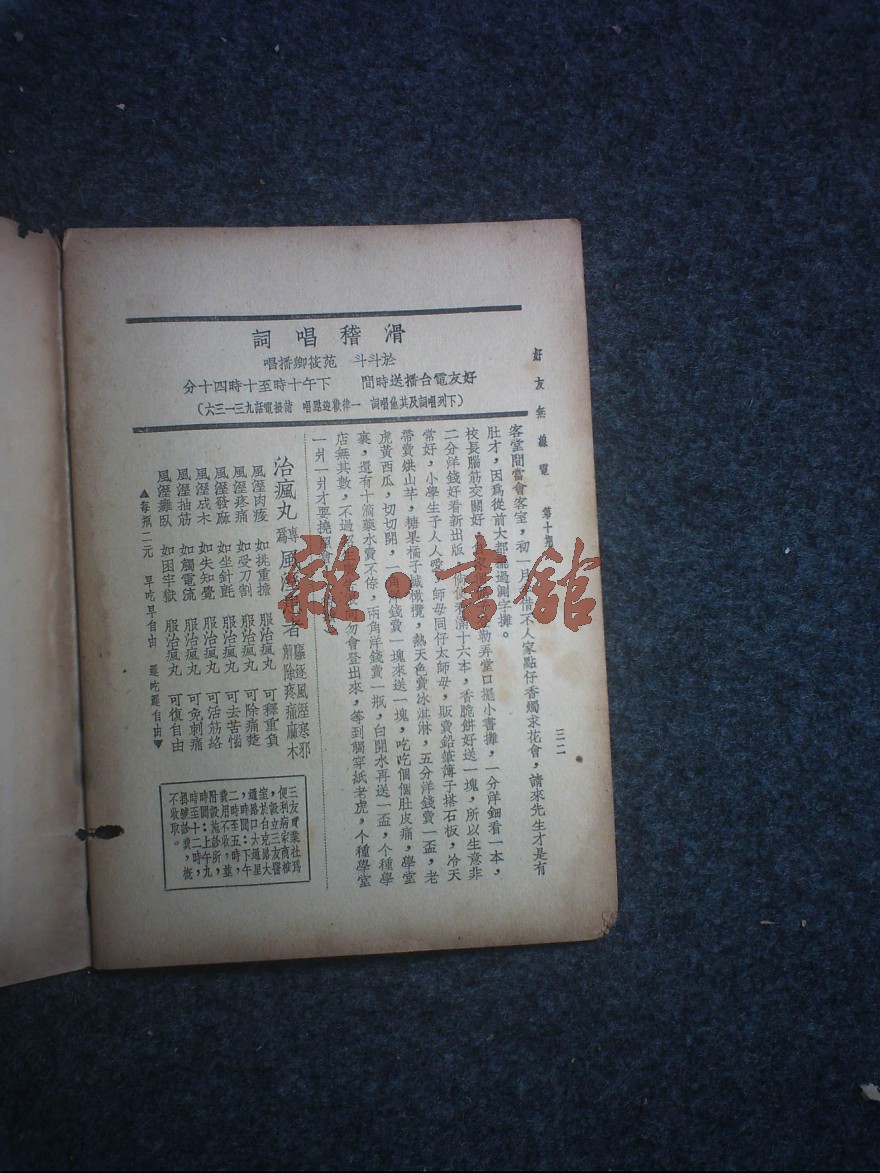 好友無線電　第十期
三二
滑稽唱詞
於斗斗　范筱卿播唱
好友電台播送時間　下午十時至十時四十分
（下列唱詞及其他唱詞　一律歡迎點唱　請撥電話九三一三六）
客堂間當會客室，初一月半借不人家點仔香燭求花會，請來先生才是有
肚才，因爲從前大都擺過測字攤。
校長腦筋交關好，勒弄堂口擺小書攤，一分洋鈿看一本，
二分洋錢好看新出版，十六本，香脆餅好送一塊，所以生意非
常好，小學生予人人愛，師母同仔太師母，販賣鉛筆簿子搭石板，冷天
帶賣烘山芋，糖果橘子鹹橄欖，熱天色賣冰淇淋，五分洋錢賣一盃，老
虎黃西瓜，切切開，一角洋錢賣一塊來送一塊，吃吃個個肚皮痛，學堂
裏，還有十滴藥水賣不倖，兩角洋錢賣一瓶，白開水再送一盃，个種學
店無其數，不過勿會登出來，等到觸穿紙老虎，个種學堂
一爿一爿才要
治瘋丸
專爲風溼患者
驅逐風溼寒邪
剷除疼痛麻木
風溼肉痠　如挑重擔　服治瘋丸　可釋重負
風溼疼痛　如受刀割　服治瘋丸　可除痛楚
風溼發麻　如坐針氈　服治瘋丸　可去苦惱
風溼成木　如失知覺　服治瘋丸　可活筋絡
風溼抽筋　如觸電流　服治瘋丸　可免刺痛
風溼癱臥　如困牢獄　服治瘋丸　可復自由
▲每瓶二元　早吃早自由　遲吃遲自由▼
三友實業社爲
便利病家商榷
室，設立三友醫
於白克路大
通路口大通里
，時間：下午
二時至五時，
費用不收，並
附設施診所，
時間：上午九
時至十二時，
掛號診費，槪
不收取。
雜·書館